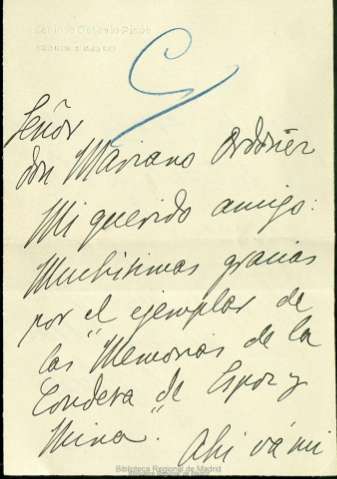 Señor
don Mariano Ordóñez
Mi querido amigo:
Muchísimas gracias
por el ejemplar de
las "Memorias de la
Condesa de Espoz y
Mina". Ahí vá mi
Biblioteca Regional de Madrid